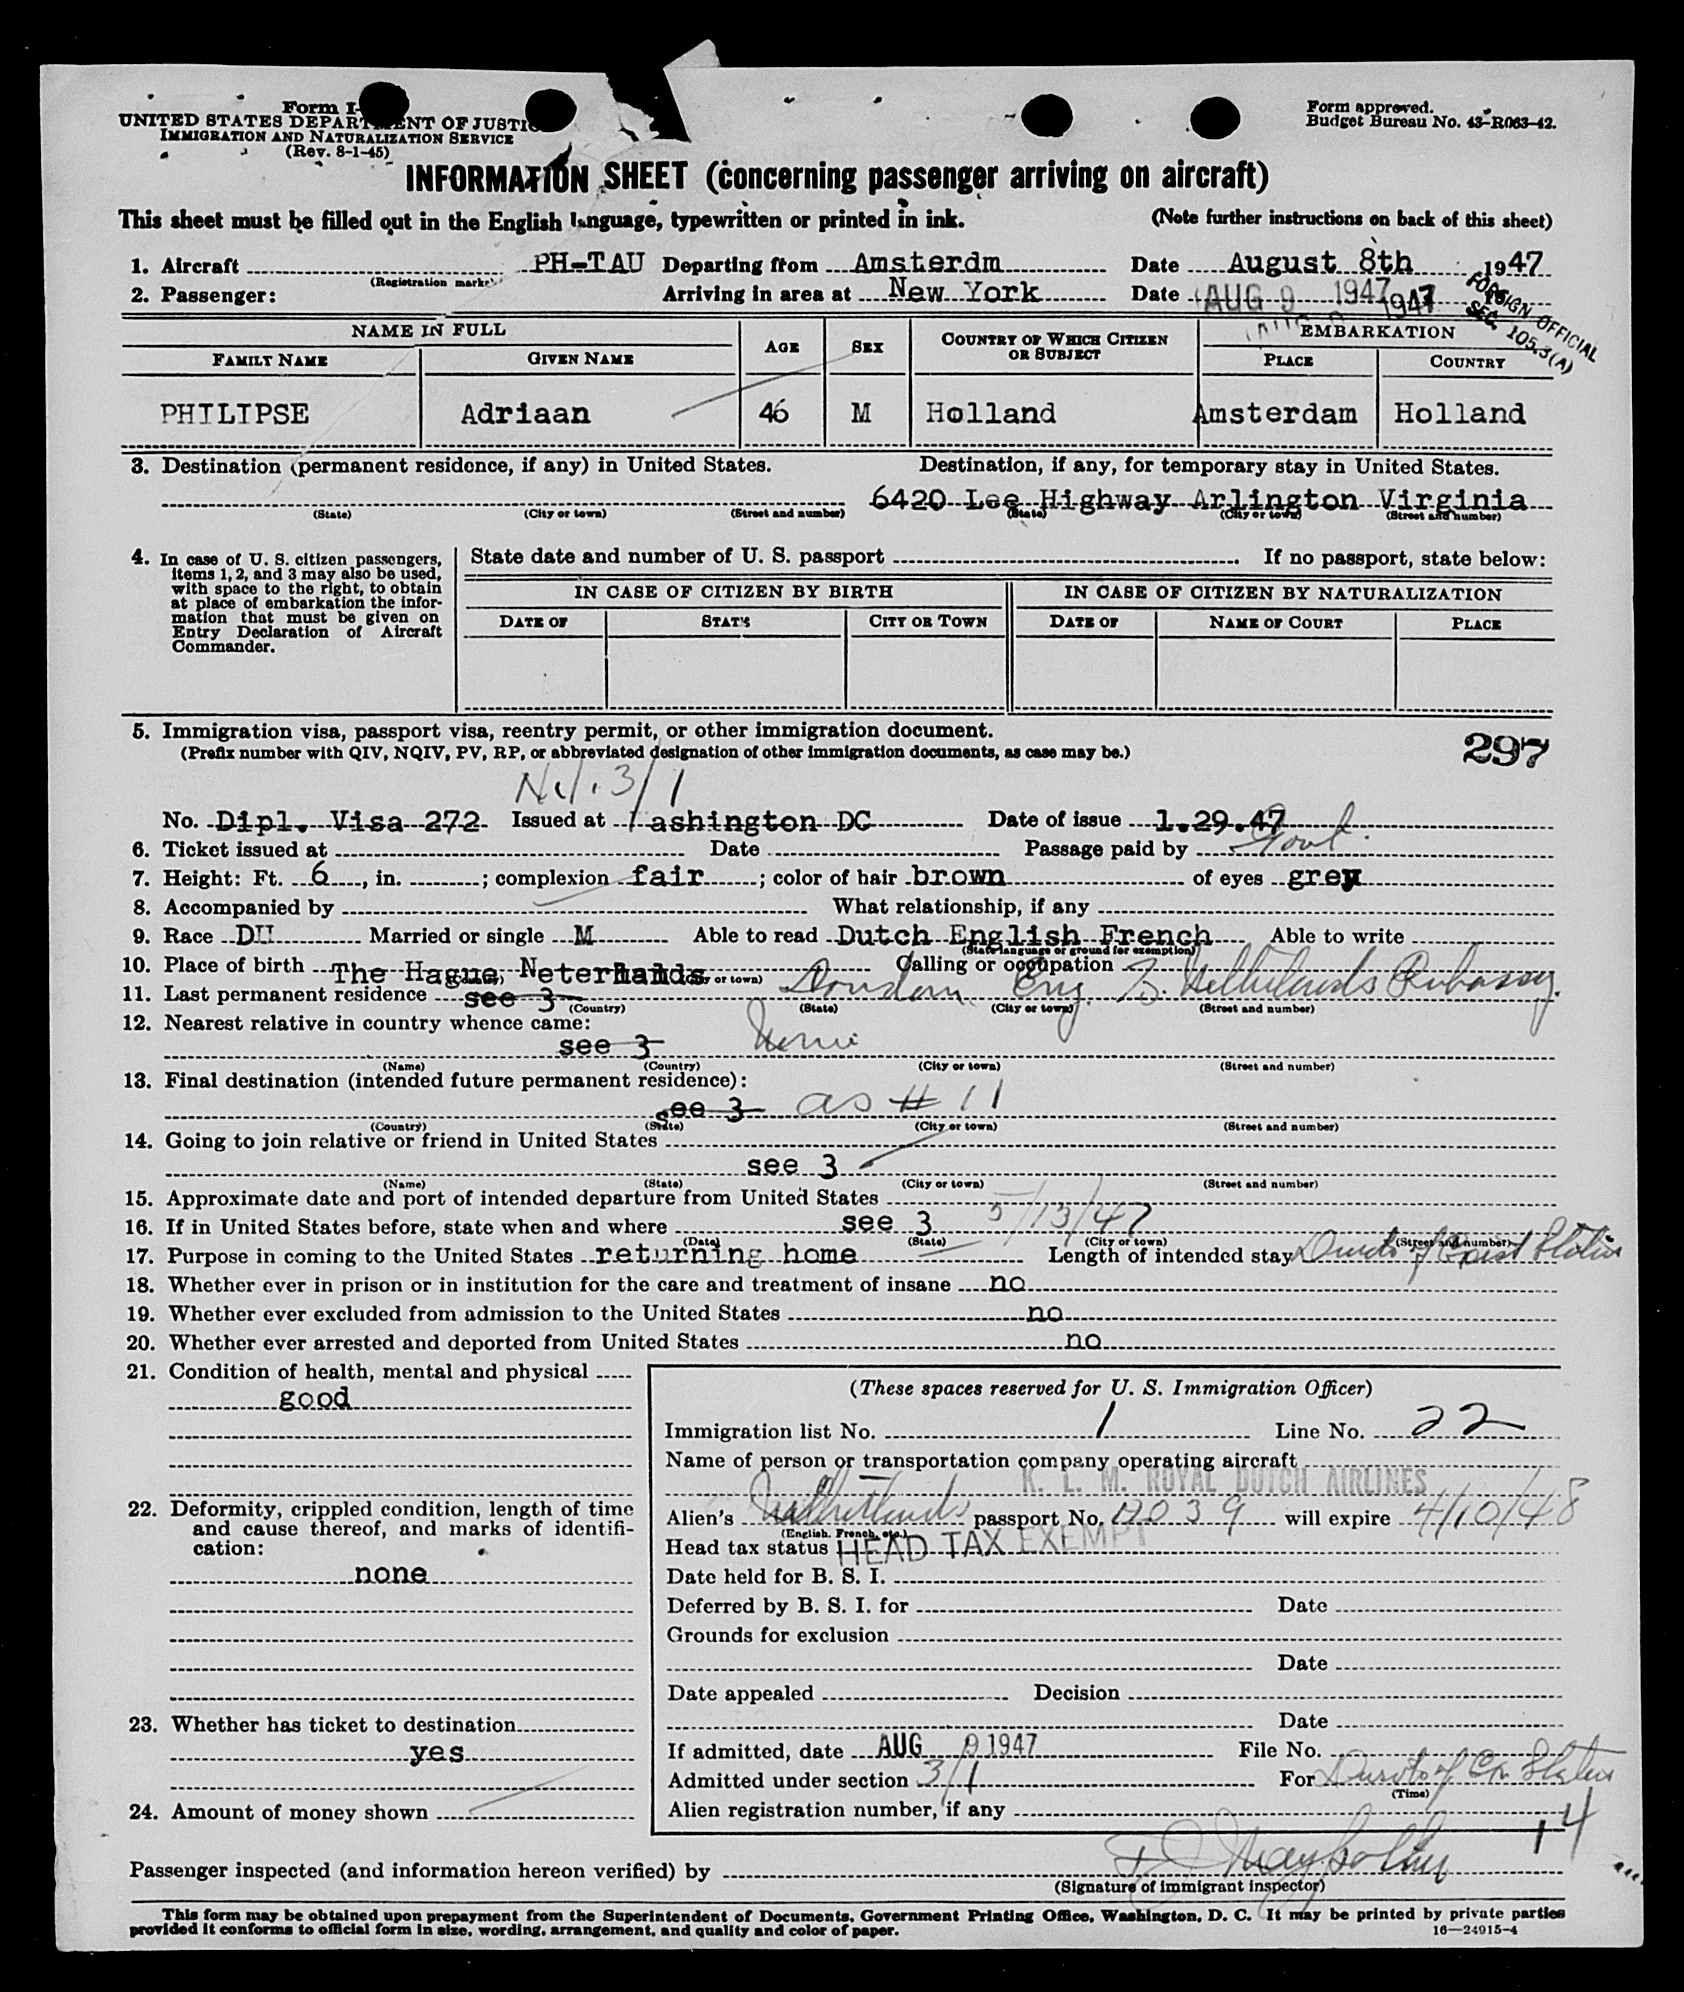 Form I-
UNITED STATES DEPARTMENT OF JUSTIC
IMMIGRATION AND NATURALIZATION SERVICE
(Rev. 8-1-45)
Form approved.
Budget Bureau No. 43-R063-42.
INFORMATION SHEET (concerning passenger arriving on aircraft)
This sheet must be filled out in the English language, typewritten or printed in ink.
(Note further instructions on back of this sheet)
1. Aircraft PH-TAU Departing from Amsterdm Date August 8th 1947
(Registration marks)
2. Passenger: Arriving in area at New York Date AUG 9 1947 1947
FOREIGN OFFICIAL
SEC. 105.3(A)
NAME IN FULL AGE SEX COUNTRY OF WHICH CITIZEN OR SUBJECT EMBARKATION
FAMILY NAME GIVEN NAME PLACE COUNTRY
PHILIPSE Adriaan 46 M Holland Amsterdam Holland
3. Destination (permanent residence, if any) in United States. Destination, if any, for temporary stay in United States.
6420 Lee Highway Arlington Virginia
(State) (City or town) (Street and number) (State) (City or town) (Street and number)
4. In case of U. S. citizen passengers,
items 1, 2, and 3 may also be used,
with space to the right, to obtain
at place of embarkation the infor-
mation that must be given on
Entry Declaration of Aircraft
Commander.
State date and number of U. S. passport If no passport, state below:
IN CASE OF CITIZEN BY BIRTH IN CASE OF CITIZEN BY NATURALIZATION
DATE OF STATE CITY OR TOWN DATE OF NAME OF COURT PLACE
5. Immigration visa, passport visa, reentry permit, or other immigration document.
(Prefix number with QIV, NQIV, PV, RP, or abbreviated designation of other immigration documents, as case may be.)
297
3/1
No. Dipl. Visa 272 Issued at Washington DC Date of issue 1.29.47
6. Ticket issued at Date Passage paid by Govt.
7. Height: Ft. 6, in. ; complexion fair; color of hair brown of eyes grey
8. Accompanied by What relationship, if any
9. Race DU Married or single M Able to read Dutch English French Able to write
(State language or ground for exemption)
10. Place of birth The Hague, Neterhands Calling or occupation Netherlands Embassy
(Country) (City or town)
11. Last permanent residence see 3 London Eng.
(Country) (State) (City or town) (Street and number)
12. Nearest relative in country whence came:
see 3 None
(Name) (Country) (City or town) (Street and number)
13. Final destination (intended future permanent residence):
see 3 as # 11
(Country) (State) (City or town) (Street and number)
14. Going to join relative or friend in United States
see 3
(Name) (State) (City or town) (Street and number)
15. Approximate date and port of intended departure from United States
16. If in United States before, state when and where see 3 5/13/47
(Date) (State) (City or town) (Street and number)
17. Purpose in coming to the United States returning home Length of intended stay
18. Whether ever in prison or in institution for the care and treatment of insane no
19. Whether ever excluded from admission to the United States no
20. Whether ever arrested and deported from United States no
21. Condition of health, mental and physical
good
22. Deformity, crippled condition, length of time
and cause thereof, and marks of identifi-
cation:
none
23. Whether has ticket to destination
yes
24. Amount of money shown
(These spaces reserved for U. S. Immigration Officer)
Immigration list No. 1 Line No. 22
Name of person or transportation company operating aircraft
K. L. M. ROYAL DUTCH AIRLINES
Alien's Netherlands passport No. 12039 will expire 4/10/48
(English, French, etc.)
Head tax status HEAD TAX EXEMPT
Date held for B. S. I.
Deferred by B. S. I. for Date
Grounds for exclusion
Date
Date appealed Decision
Date
If admitted, date AUG 9 1947 File No.
Admitted under section 3/1 For
(Time)
Alien registration number, if any
14
Passenger inspected (and information hereon verified) by
(Signature of immigrant inspector)
This form may be obtained upon prepayment from the Superintendent of Documents, Government Printing Office, Washington, D. C. It may be printed by private parties
provided it conforms to official form in size, wording, arrangement, and quality and color of paper.
16—24915-4